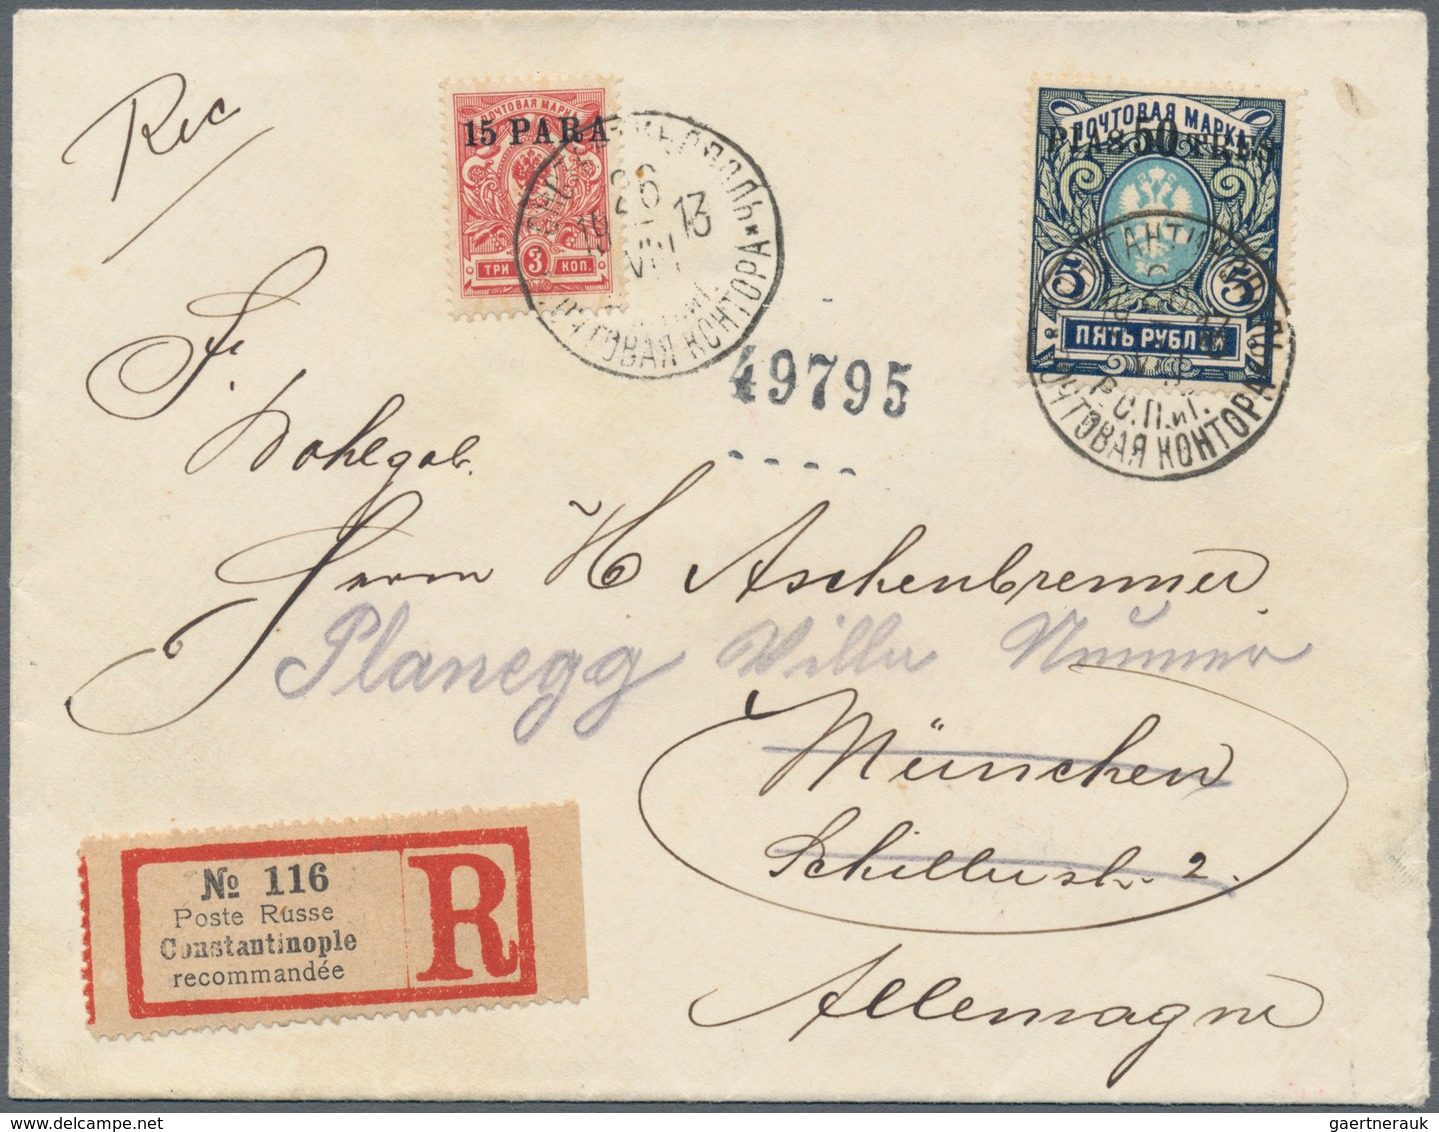 Rec
ПОЧТОВАЯ МАРКА
15 PARA
ТРИ 3 КОП.
26
19 13
VIII
ПОЧТОВАЯ КОНТОРА
ПОЧТОВАЯ МАРКА
PIAS 50 TRES
5 5
ПЯТЬ РУБЛЕЙ
Р.О.П.иТ.
ПОЧТОВАЯ КОНТОРА
49795
F.
Herrn H Aschenbrenner
Planegg Villa Nunner
München
Schillerstr. 2.
Allemagne
№ 116
Poste Russe
Constantinople
recommandée
R
gaertnerauk @ delcampe.net